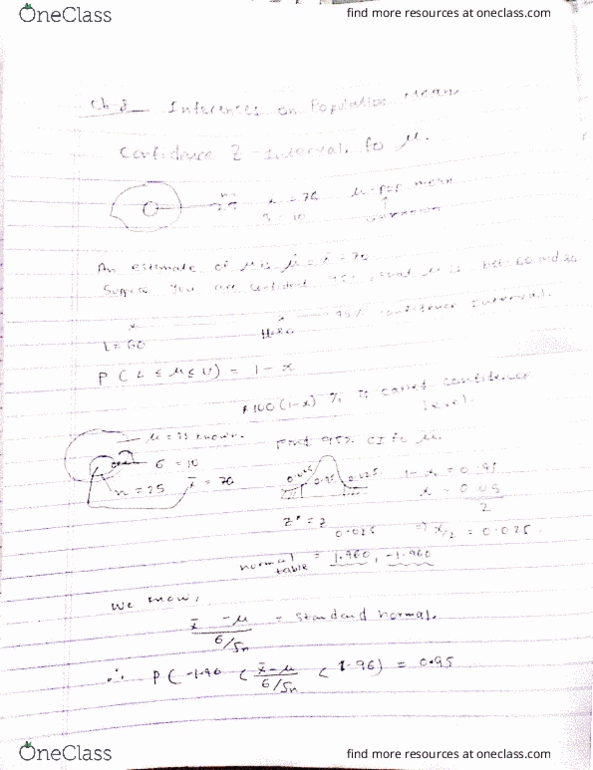 OneClass
find more resources at oneclass.com
Ch-8 Inferences on Population Mean
Confidence Z-Interval. fo μ.
n = 25 x̄ = 70 μ-pop mean
= 10 unknown
An estimate of μ is μ̂ = x̄ = 70
Suppose you are confident that μ is bet 60 and
95% confidence Interval.
L = 60
P ( L ≤ μ ≤ U ) = 1 - α
100(1-α) % is called confidence
level.
μ = is known. Find 95% CI fo μ.
σ = 10
n = 25 x̄ = 70
0.025 0.95 0.025
1 - α = 0.95
α = 0.05
2
z* = z 0.025 ⇒ α/2 = 0.025
normal table = 1.960, -1.960
We know,
x̄ - μ
σ/√n
= standard normal.
∴ P( -1.96 < x̄-μ / σ/√n < 1.96) = 0.95
OneClass
find more resources at oneclass.com